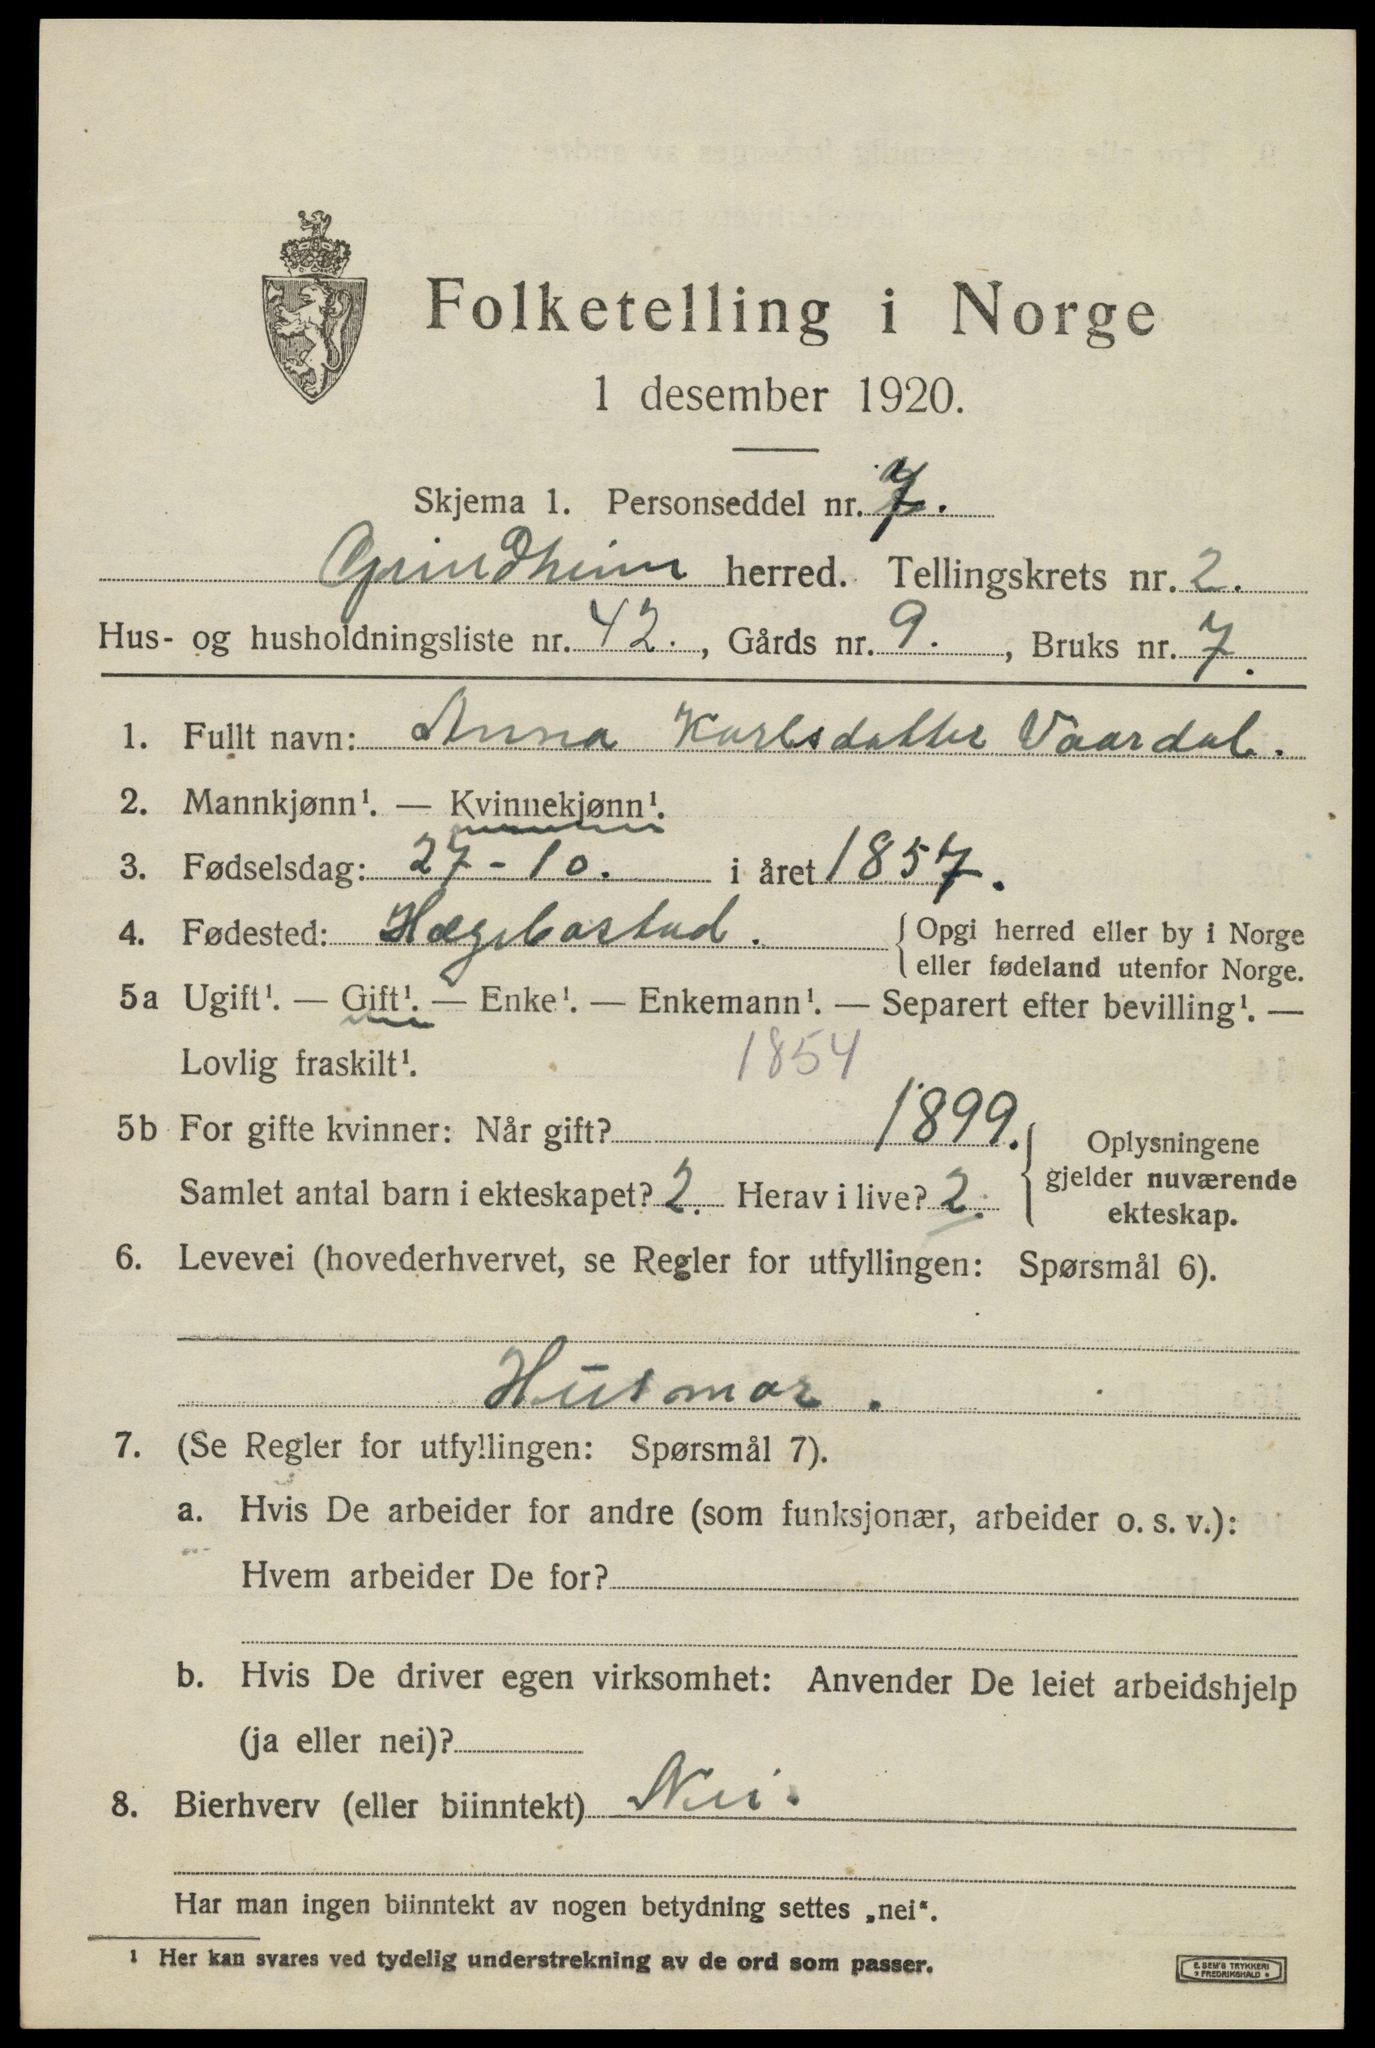 Folketelling i Norge
1 desember 1920.
Skjema 1. Personseddel nr. 7.
Grindheim herred. Tellingskrets nr. 2.
Hus- og husholdningsliste nr. 42., Gårds nr. 9., Bruks nr. 7.
1. Fullt navn: Anna Karlsdatter Vaardal.
2. Mannkjønn¹. — Kvinnekjønn¹.
3. Fødselsdag: 27-10. i året 1857.
4. Fødested: Hægebostad. { Opgi herred eller by i Norge
eller fødeland utenfor Norge.
5a Ugift¹. — Gift¹. — Enke¹. — Enkemann¹. — Separert efter bevilling¹. —
Lovlig fraskilt¹. 1854
5b For gifte kvinner: Når gift? 1899. { Oplysningene
gjelder nuværende
ekteskap.
Samlet antal barn i ekteskapet? 2. Herav i live? 2.
6. Levevei (hovederhvervet, se Regler for utfyllingen: Spørsmål 6).
Husmor.
7. (Se Regler for utfyllingen: Spørsmål 7).
a. Hvis De arbeider for andre (som funksjonær, arbeider o. s. v.):
Hvem arbeider De for?
b. Hvis De driver egen virksomhet: Anvender De leiet arbeidshjelp
(ja eller nei)?
8. Bierhverv (eller biinntekt) Nei.
Har man ingen biinntekt av nogen betydning settes „nei“.
¹ Her kan svares ved tydelig understrekning av de ord som passer.
E. SEM'S TRYKKERI
FREDRIKSHALD